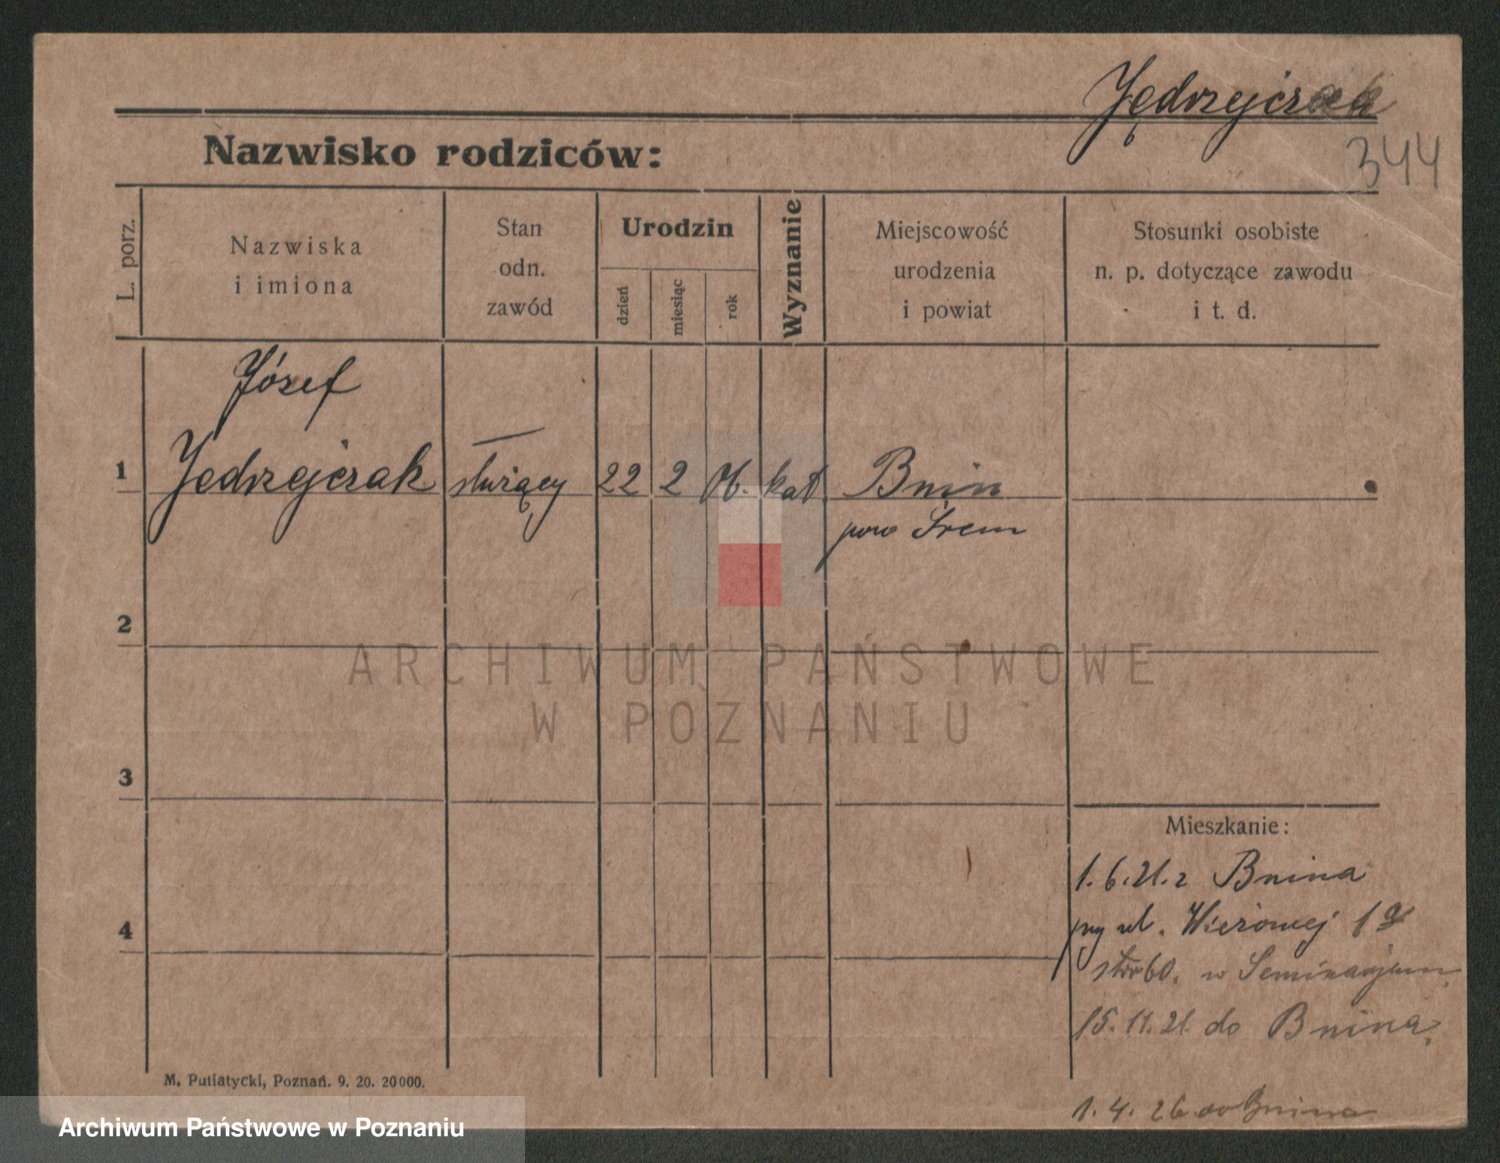 Jędrzejczak
344
Nazwisko rodziców:
L. porz.
Nazwiska
i imiona
Stan
odn.
zawód
Urodzin
dzień
miesiąc
rok
Wyznanie
Miejscowość
urodzenia
i powiat
Stosunki osobiste
n. p. dotyczące zawodu
i t. d.
Józef
1 Jędrzejczak służący 22 2 kat. Bnin
pow Śrem
2
ARCHIWUM PAŃSTWOWE
W POZNANIU
3
Mieszkanie:
1.6.21. z Bnina
4
ul. Wieżowej
w Seminarjum
15.11.21. do Bnina
M. Putiatycki, Poznań. 9. 20. 20000.
1. 4. 26 do Bnina
Archiwum Państwowe w Poznaniu